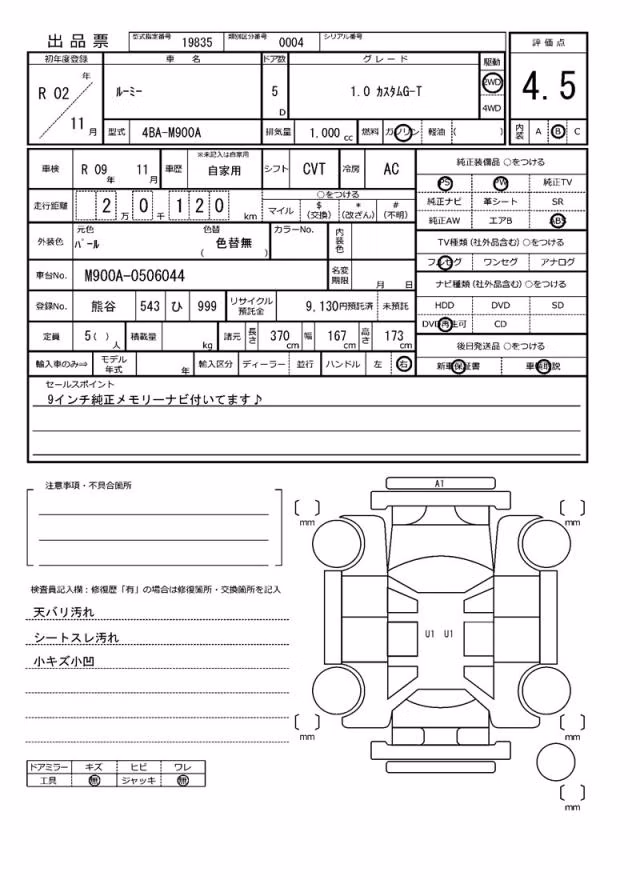 出品票 型式指定番号 19835 類別区分番号 0004 シリアル番号
評価点
4.5
内装 A B C
初年度登録 車名 ドア数 グレード 駆動
R 02 年 11 月 ルーミー 5 D 1.0 カスタムG-T 2WD 4WD
型式 4BA-M900A 排気量 1.000 cc 燃料 ガソリン 軽油 ( )
車検 R 09 年 11 月 車歴 ※未記入は自家用 自家用 シフト CVT 冷房 AC
走行距離 2 万 0 千 1 2 0 km ○をつける
マイル $ (交換) * (改ざん) # (不明)
外装色 元色 パール 色替 ( 色替無 ) カラーNo. 内装色
車台No. M900A-0506044 名変期限 月 日
登録No. 熊谷 543 ひ 999 リサイクル預託金 9,130円預託済 未預託
定員 5 ( ) 人 積載量 kg 諸元 長さ 370 cm 幅 167 cm 高さ 173 cm
輸入車のみ⇒ モデル年式 年 輸入区分 ディーラー 並行 ハンドル 左 右
純正装備品 ○をつける
PS PW 純正TV
純正ナビ 革シート SR
純正AW エアB ABS
TV種類 (社外品含む) ○をつける
フルセグ ワンセグ アナログ
ナビ種類 (社外品含む) ○をつける
HDD DVD SD
DVD再生可 CD
後日発送品 ○をつける
新車保証書 車輌取説
セールスポイント
9インチ純正メモリーナビ付いてます♪
注意事項・不具合箇所
検査員記入欄：修復歴「有」の場合は修復箇所・交換箇所を記入
天バリ汚れ
シートスレ汚れ
小キズ小凹
ドアミラー キズ ヒビ ワレ
工具 無 ジャッキ 無
A1
mm mm
U1 U1
mm mm
mm